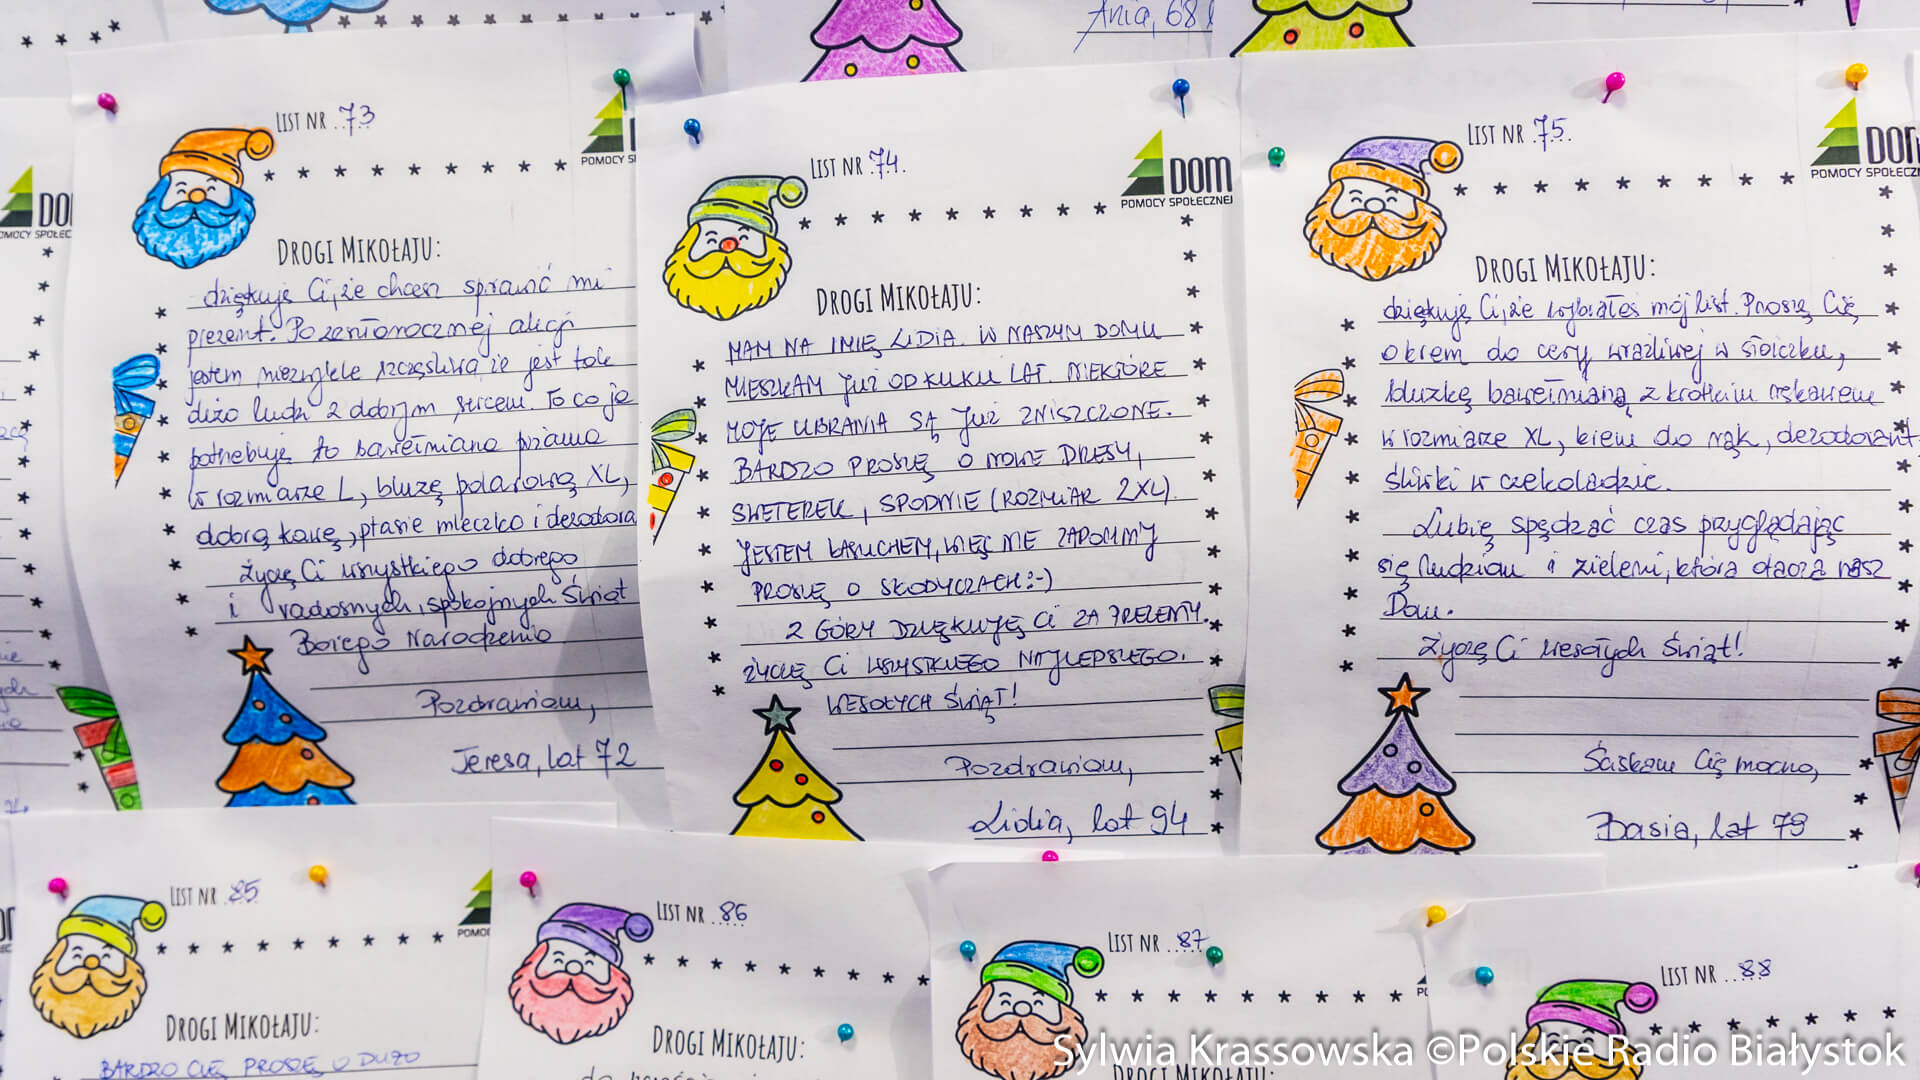 Ania, 68 l
LIST NR 73
POMOCY SP
DROGI MIKOŁAJU:
dziękuję Ci, że chcesz sprawić mi
prezent. Po zeszłorocznej akcji
jestem niezwykle szczęśliwa, że jest tak
dużo ludzi z dobrym sercem. To co ja
potrzebuję to bawełniana piżama
w rozmiarze L, bluzę polarową XL,
dobrą kawę, ptasie mleczko i dezodora
Życzę Ci wszystkiego dobrego
i radosnych, spokojnych Świąt
Bożego Narodzenia
Pozdrawiam,
Teresa, lat 72
LIST NR 74.
DOM
POMOCY SPOŁECZNEJ
DROGI MIKOŁAJU:
MAM NA IMIĘ LIDIA. W NASZYM DOMU
MIESZKAM JUŻ OD KILKU LAT. NIEKTÓRE
MOJE UBRANIA SĄ JUŻ ZNISZCZONE.
BARDZO PROSZĘ O NOWE DRESY,
SWETEREK, SPODNIE (ROZMIAR 2XL).
JESTEM ŁASUCHEM, WIĘC NIE ZAPOMNIJ
PROSZĘ O SŁODYCZACH :-)
Z GÓRY DZIĘKUJĘ CI ZA PREZENTY.
ŻYCZĘ CI WSZYSTKIEGO NAJLEPSZEGO.
WESOŁYCH ŚWIĄT!
Pozdrawiam,
Lidia, lat 94
LIST NR 75.
DOM
POMOCY SPOŁECZN
DROGI MIKOŁAJU:
dziękuję Ci, że wybrałeś mój list. Proszę Cię
o krem do cery wrażliwej w słoiczku,
bluzkę bawełnianą z krótkim rękawem
w rozmiarze XL, krem do rąk, dezodorant,
śliwki w czekoladzie.
Lubię spędzać czas przyglądając
się ludziom i zieleni, która otacza nasz
Dom.
Życzę Ci wesołych Świąt!
Ściskam Cię mocno,
Basia, lat 79
DO
OMOCY SPOŁEC
LIST NR 85
POMO
DROGI MIKOŁAJU:
BARDZO CIĘ PROSZĘ O DUŻO
LIST NR 86
DROGI MIKOŁAJU:
LIST NR 87
DROGI MIKOŁAJU:
LIST NR 88
Sylwia Krassowska ©Polskie Radio Białystok